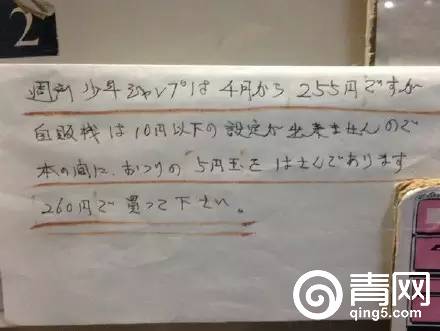 2
週刊少年ジャンプは4月から255円ですが
自販機は10円以下の設定が出来ませんので
本の間に、おつりの5円玉をはさんであります
260円で買って下さい。
青网
qing5.com